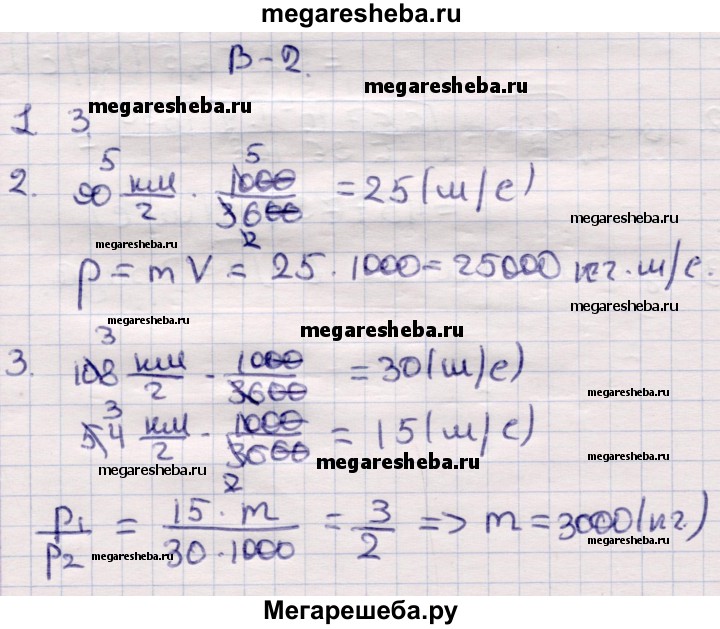 megaresheba.ru
В-2.
megaresheba.ru
megaresheba.ru
1 3
2. 90 км/г · 1000/3600 = 25 (м/с)
5 5 2
megaresheba.ru
megaresheba.ru
p = m V = 25 · 1000 = 25000 кг·м/с.
megaresheba.ru
megaresheba.ru
megaresheba.ru
3. 108 км/г · 1000/3600 = 30 (м/с)
3
megaresheba.ru
54 км/г · 1000/3600 = 15 (м/с)
3 2
megaresheba.ru
megaresheba.ru
megaresheba.ru
p₁/p₂ = 15 · m/30 · 1000 = 3/2 => m = 3000 (кг)
megaresheba.ru
megaresheba.ru
megaresheba.ru
Мегарешеба.ру